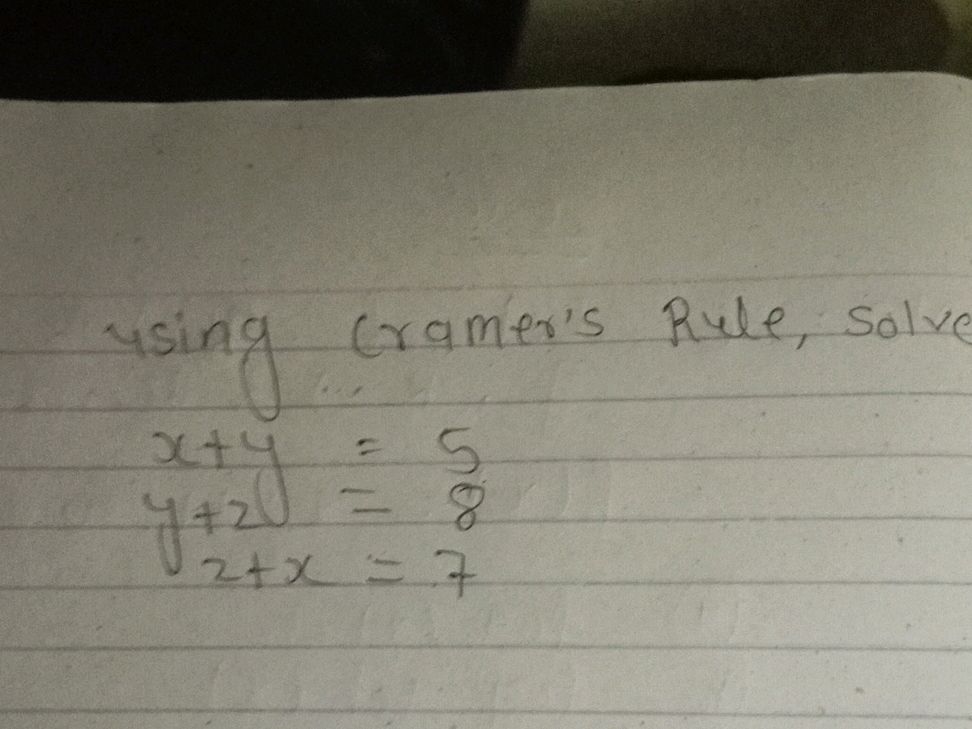 using Cramer's Rule, solve
x+y = 5
y+z = 8
z+x = 7